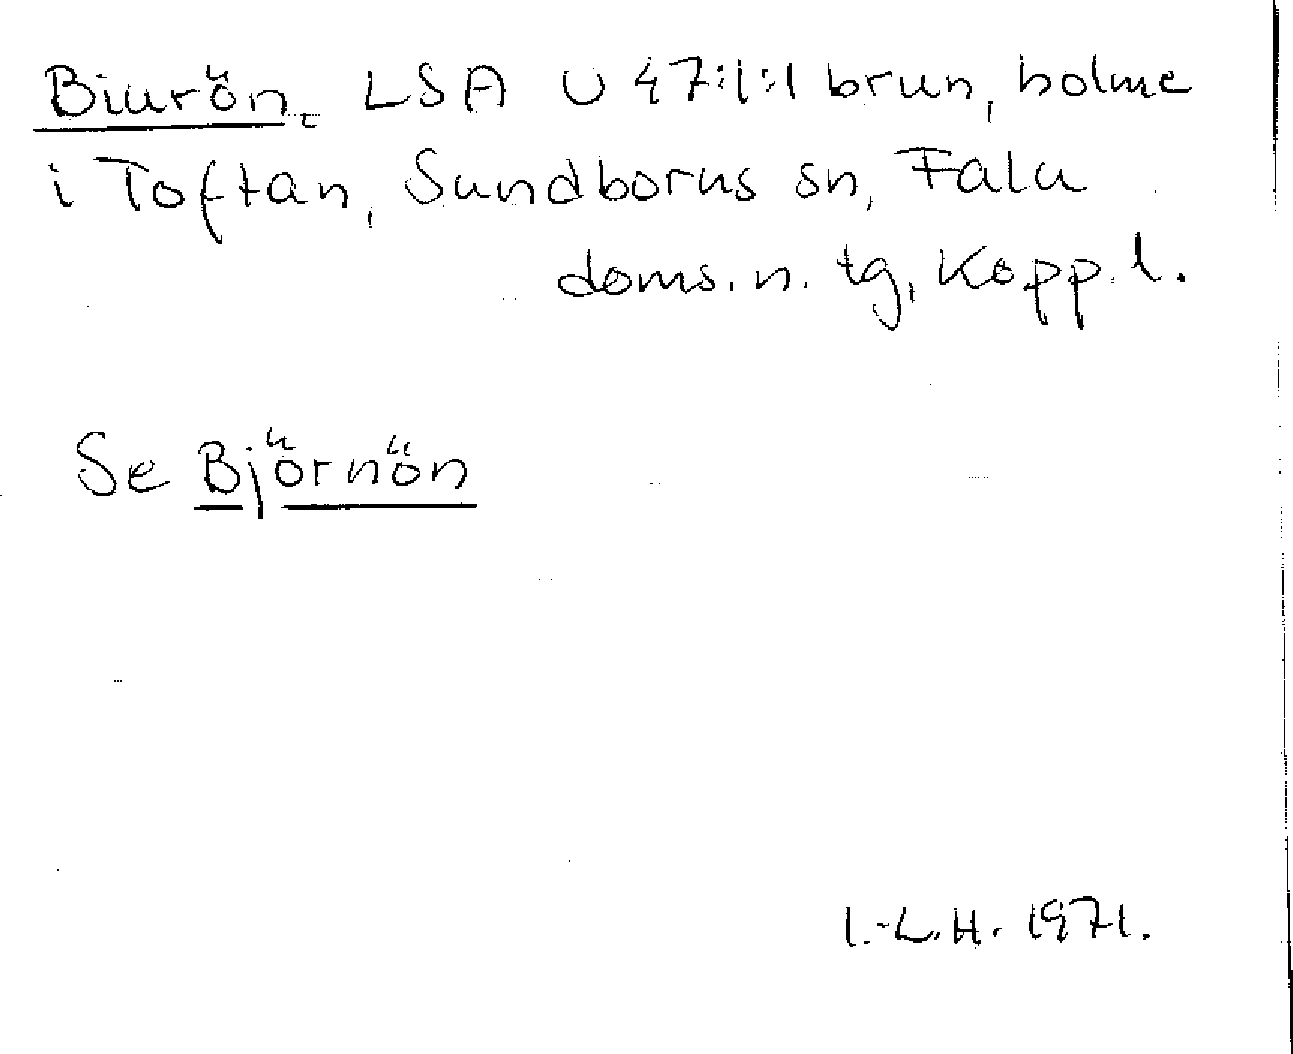 Biurön, LSA U 47:1:1 brun, holme
i Toftan, Sundborns sn, Falu
doms. n. tg, Kopp. l.
Se Björnön
I.-L.H. 1971.